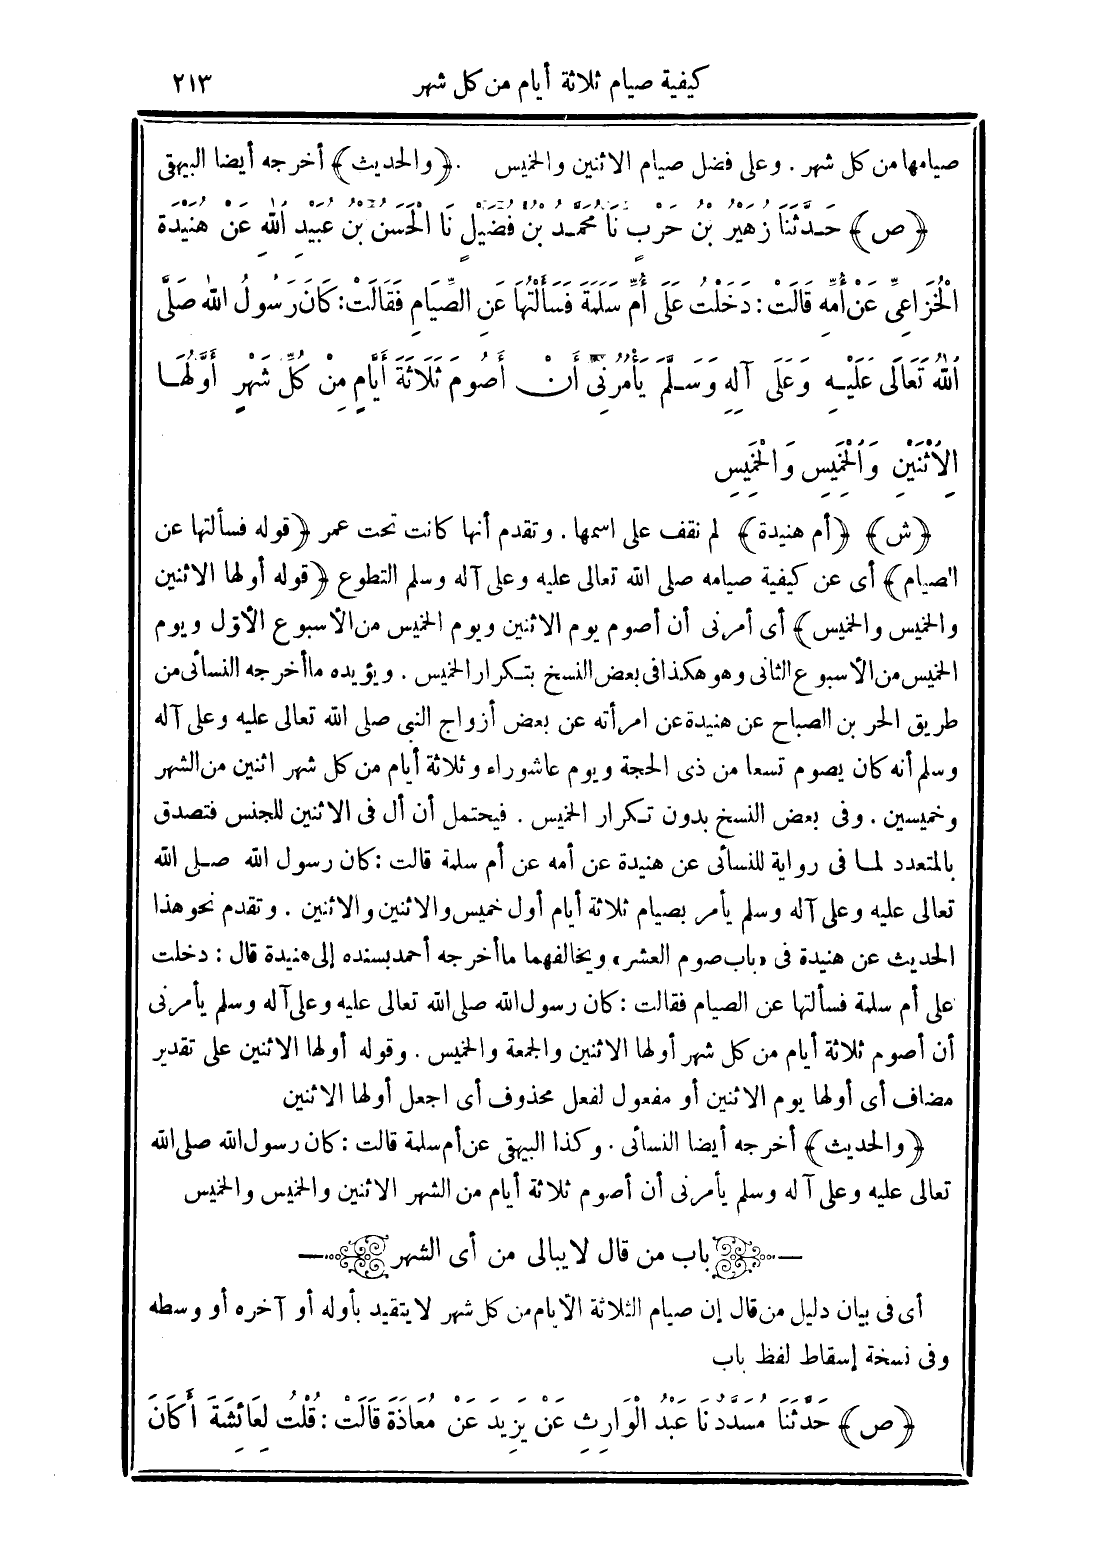 كيفية صيام ثلاثة أيام من كل شهر ٢١٣
صيامها من كل شهر . وعلى فضل صيام الاثنين والخميس . ﴿والحديث﴾ أخرجه أيضا البيهقى
﴿ص﴾ حَدَّثَنَا زُهَيْرُ بْنُ حَرْبٍ نَا مُحَمَّدُ بْنُ فُضَيْلٍ نَا الْحَسَنُ بْنُ عُبَيْدِ اللهِ عَنْ هُنَيْدَةَ
الْخُزَاعِىِّ عَنْ أُمِّهِ قَالَتْ : دَخَلْتُ عَلَى أُمِّ سَلَمَةَ فَسَأَلْتُهَا عَنِ الصِّيَامِ فَقَالَتْ: كَانَ رَسُولُ اللهِ صَلَّى
اللهُ تَعَالَى عَلَيْهِ وَعَلَى آلِهِ وَسَلَّمَ يَأْمُرُنِى أَنْ أَصُومَ ثَلَاثَةَ أَيَّامٍ مِنْ كُلِّ شَهْرٍ أَوَّلُهَا
الِاثْنَيْنِ وَالْخَمِيسِ وَالْخَمِيسِ
﴿ش﴾ ﴿أم هنيدة﴾ لم نقف على اسمها . وتقدم أنها كانت تحت عمر ﴿قوله فسألتها عن
الصيام﴾ أى عن كيفية صيامه صلى الله تعالى عليه وعلى آله وسلم التطوع ﴿قوله أولها الاثنين
والخميس والخميس﴾ أى أمرنى أن أصوم يوم الاثنين ويوم الخميس من الأسبوع الأول ويوم
الخميس من الأسبوع الثانى وهو هكذا فى بعض النسخ بتكرار الخميس . ويؤيده ما أخرجه النسائى من
طريق الحر بن الصباح عن هنيدة عن امرأته عن بعض أزواج النبى صلى الله تعالى عليه وعلى آله
وسلم أنه كان يصوم تسعا من ذى الحجة ويوم عاشوراء وثلاثة أيام من كل شهر اثنين من الشهر
وخميسين . وفى بعض النسخ بدون تكرار الخميس . فيحتمل أن أل فى الاثنين للجنس فتصدق
بالمتعدد لما فى رواية للنسائى عن هنيدة عن أمه عن أم سلمة قالت : كان رسول الله صلى الله
تعالى عليه وعلى آله وسلم يأمر بصيام ثلاثة أيام أول خميس والاثنين والاثنين . وتقدم نحو هذا
الحديث عن هنيدة فى «باب صوم العشر» ويخالفهما ما أخرجه أحمد بسنده إلى هنيدة قال : دخلت
على أم سلمة فسألتها عن الصيام فقالت : كان رسول الله صلى الله تعالى عليه وعلى آله وسلم يأمرنى
أن أصوم ثلاثة أيام من كل شهر أولها الاثنين والجمعة والخميس . وقوله أولها الاثنين على تقدير
مضاف أى أولها يوم الاثنين أو مفعول لفعل محذوف أى اجعل أولها الاثنين
﴿والحديث﴾ أخرجه أيضا النسائى . وكذا البيهقى عن أم سلمة قالت : كان رسول الله صلى الله
تعالى عليه وعلى آله وسلم يأمرنى أن أصوم ثلاثة أيام من الشهر الاثنين والخميس والخميس
باب من قال لا يبالى من أى الشهر
أى فى بيان دليل من قال إن صيام الثلاثة الأيام من كل شهر لا يتقيد بأوله أو آخره أو وسطه
وفى نسخة إسقاط لفظ باب
﴿ص﴾ حَدَّثَنَا مُسَدَّدٌ نَا عَبْدُ الْوَارِثِ عَنْ يَزِيدَ عَنْ مُعَاذَةَ قَالَتْ : قُلْتُ لِعَائِشَةَ أَكَانَ